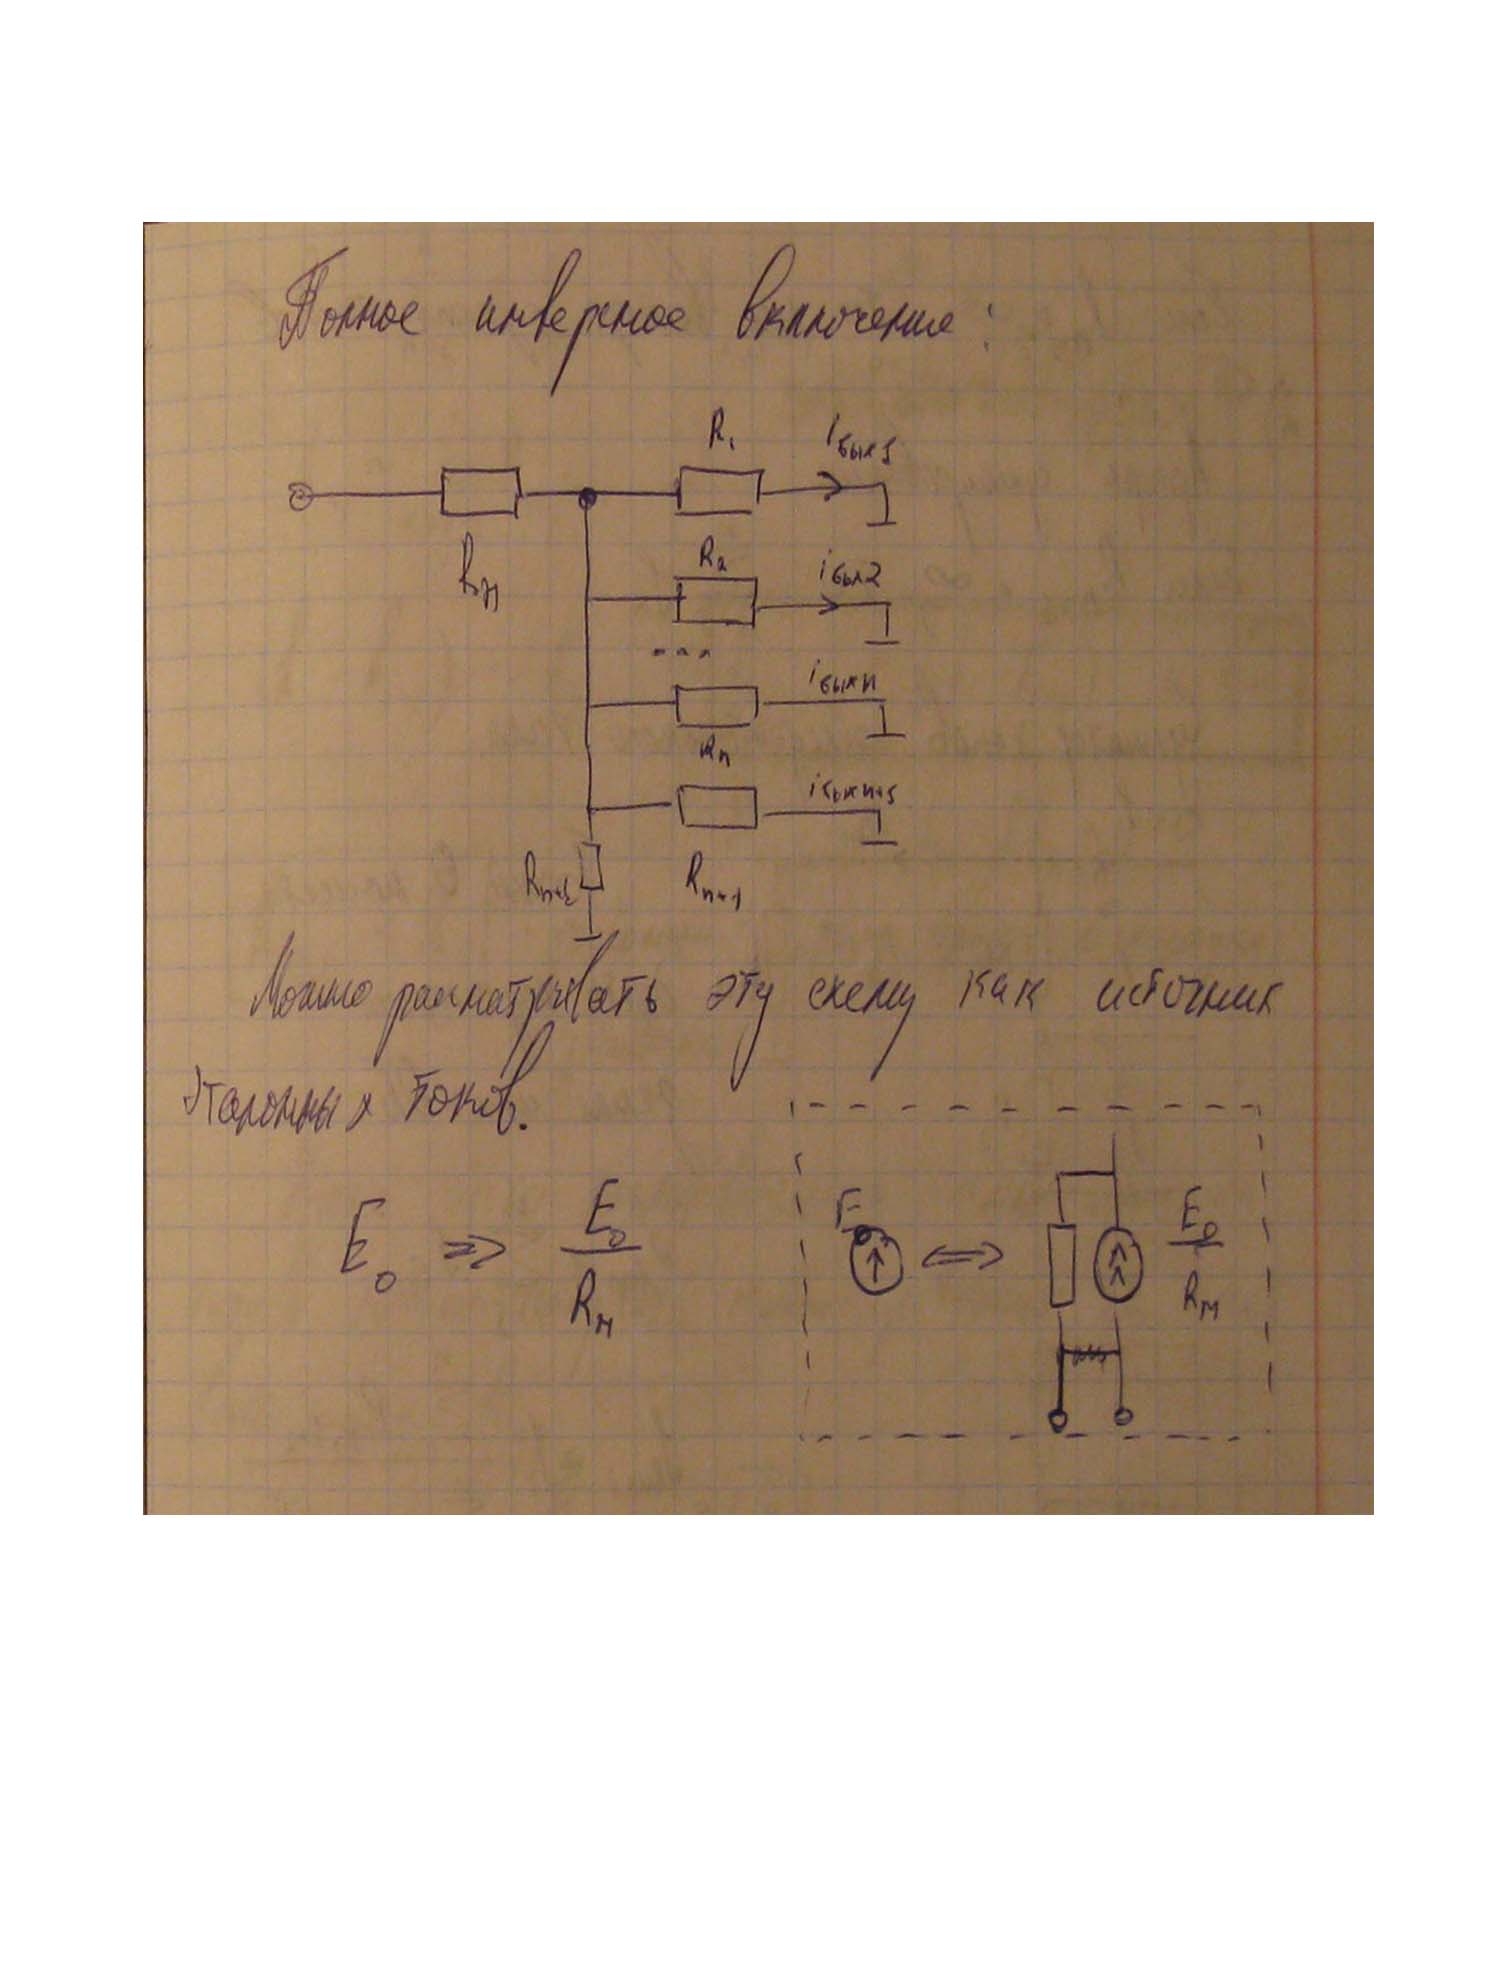 Полное инверсное включение:
R₁ iвых1
Rн
R₂ iвых2
...
iвыхn
Rn
iвыхn+1
Rn+2 Rn+1
Можно рассматривать эту схему как источник
эталонных токов.
E₀ ⇒ E₀/Rн
E₀ ⇔ E₀/Rн